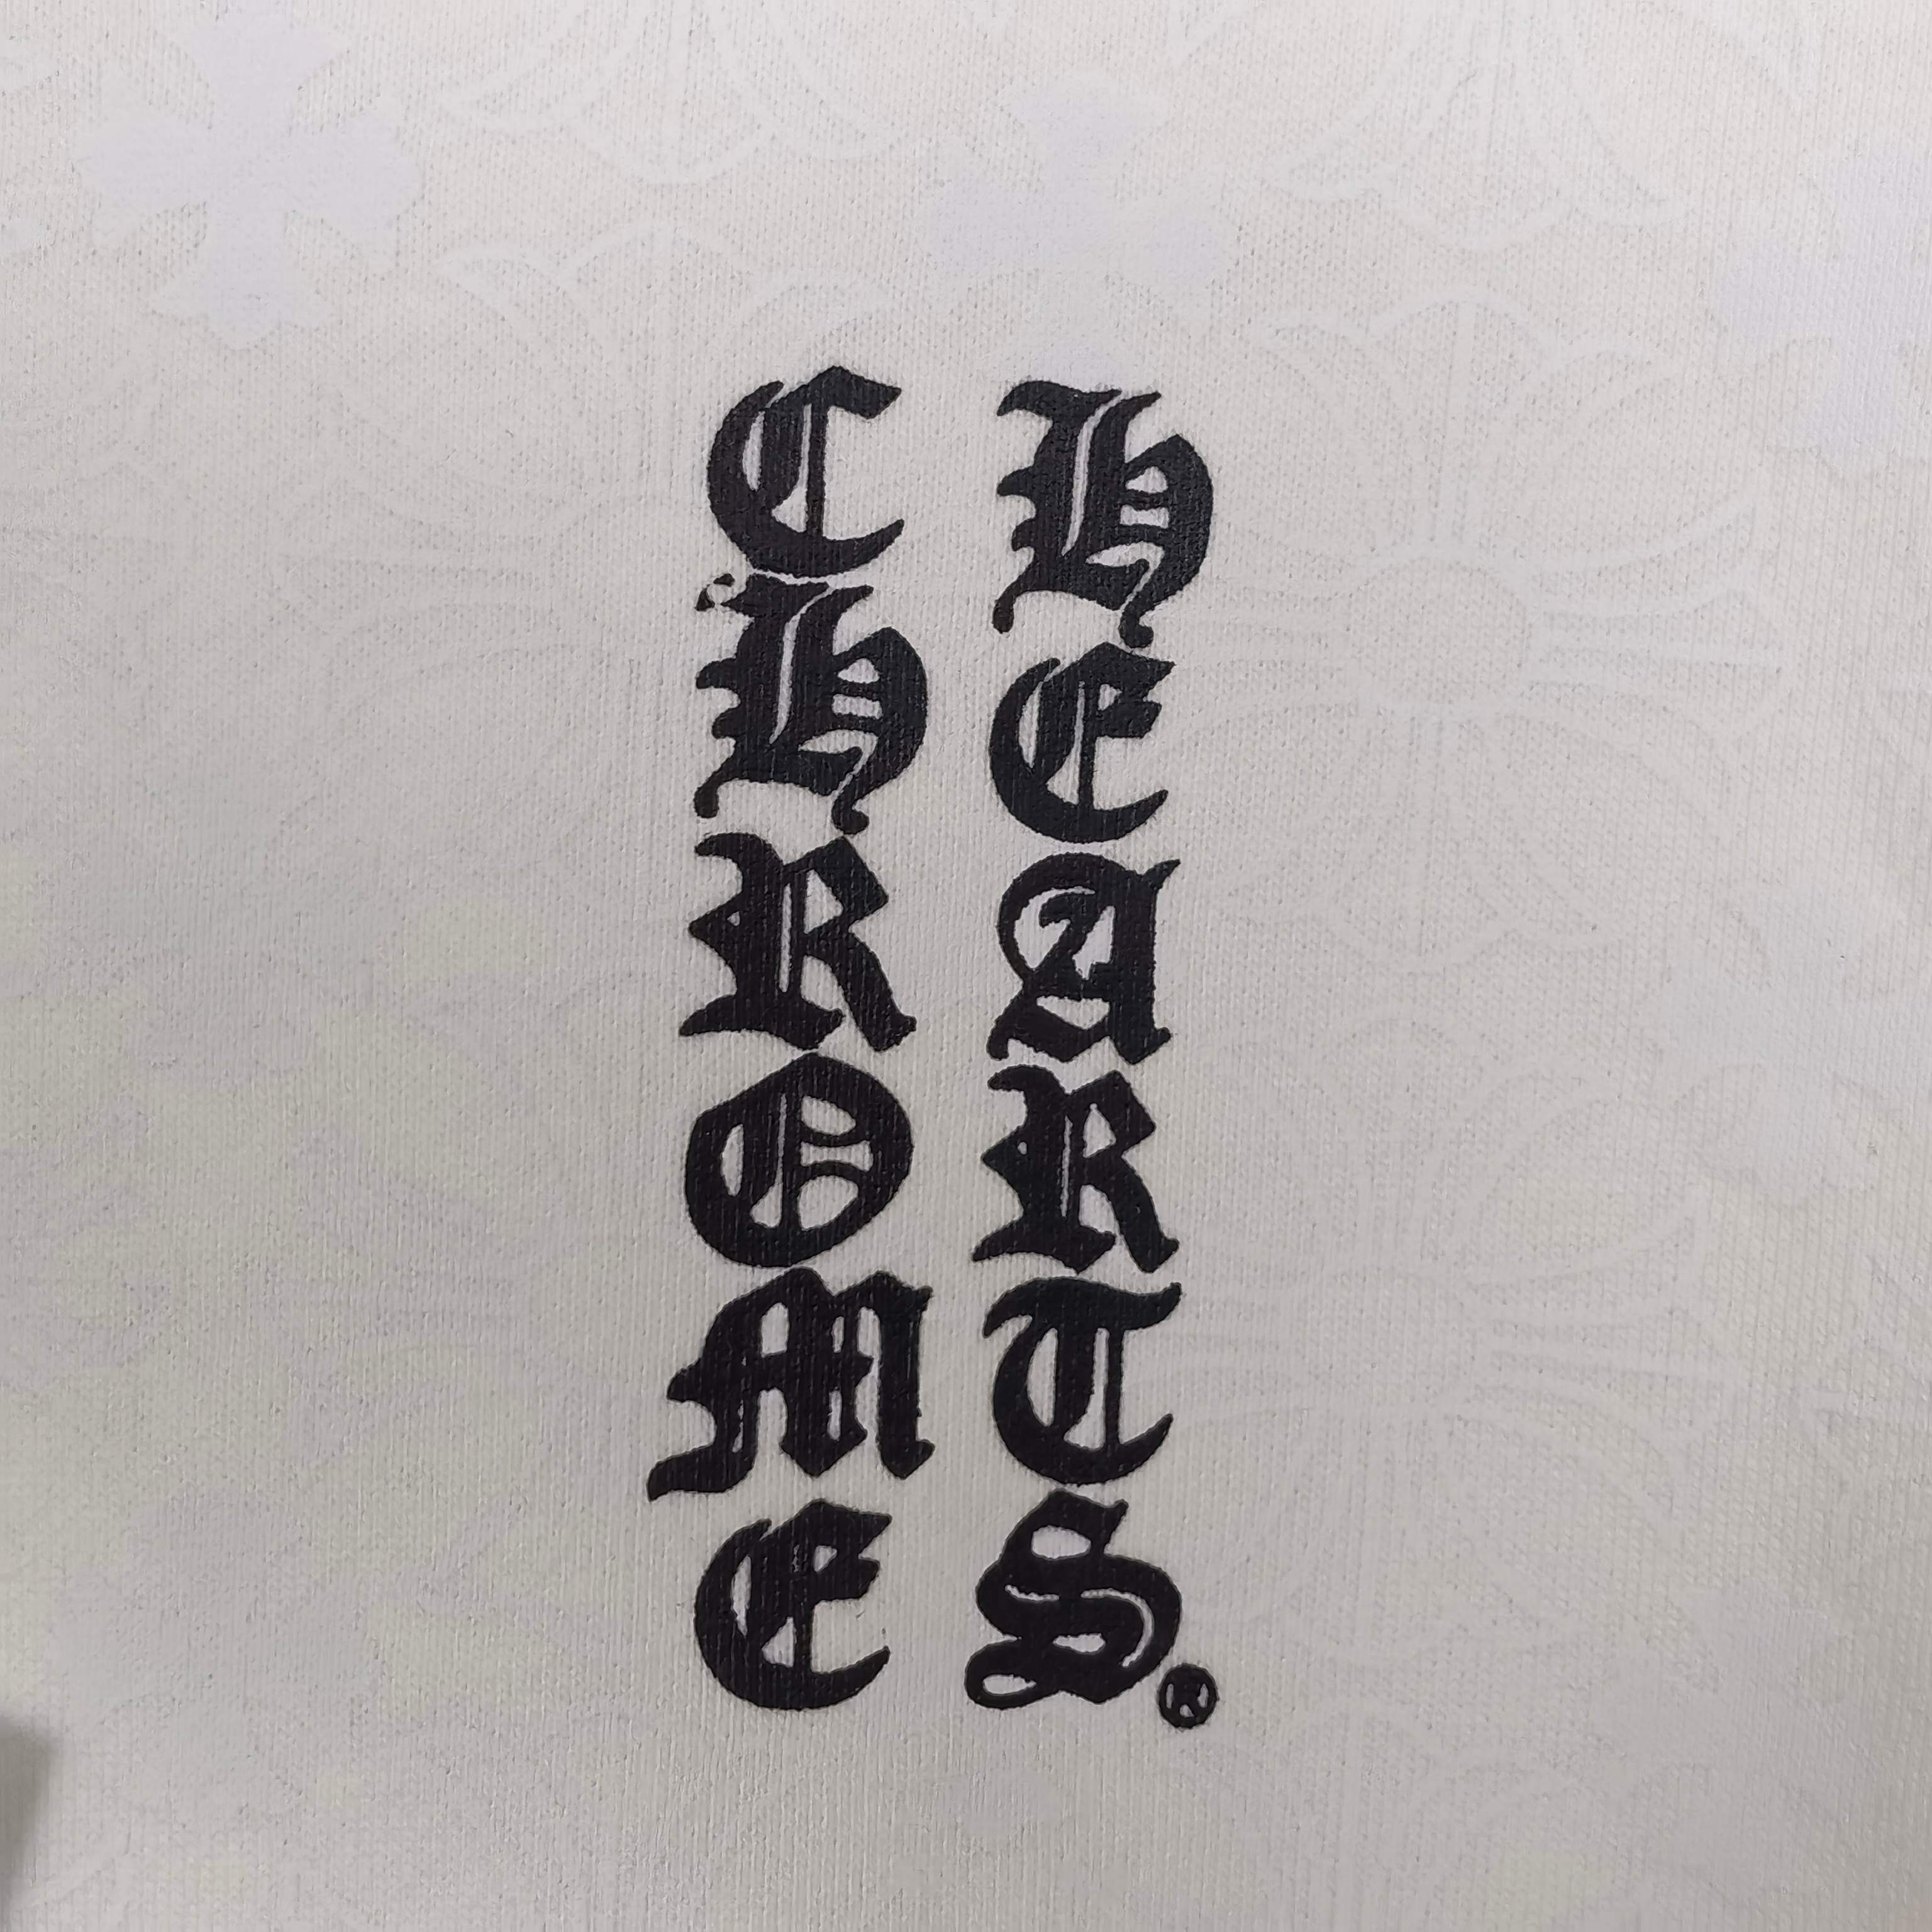 CHROME
HEARTS®